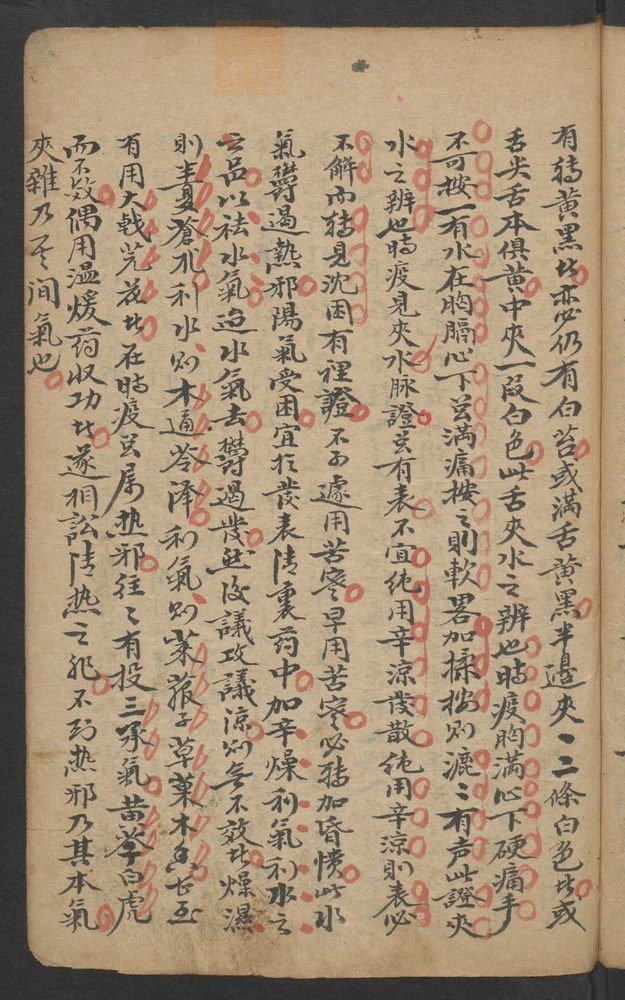 有轉黃黑者亦必仍有白苔或滿舌黃黑半邊夾一二條白色者或
舌尖舌本俱黃中夾一段白色此舌夾水之辨也時疫胸滿心下硬痛手
不可按一有水在胸膈心下芸滿痛按之則軟畧加揉按則漉漉有声此證夾
水之辨也時疫見夾水脉證芸有表不宜純用辛涼發散純用辛涼則表必
不解而轉見沈困有裡證不可遽用苦寒早用苦寒必轉加昏憒此水
氣欝遏熱邪陽氣受困宜於發表清裏药中加辛燥利氣利水之
品以祛水氣迨水氣去欝遏發然後議攻議涼則無不效者燥濕
則半夏蒼朮利水則木通苓澤利氣則萊菔子草菓木香甚至
有用大戟芫花者在時疫芸属热邪往々有投三承氣黄芩白虎
而不效偶用溫煖药收功者遂相訟清热之非不知热邪乃其本氣
夾雜乃其间氣也